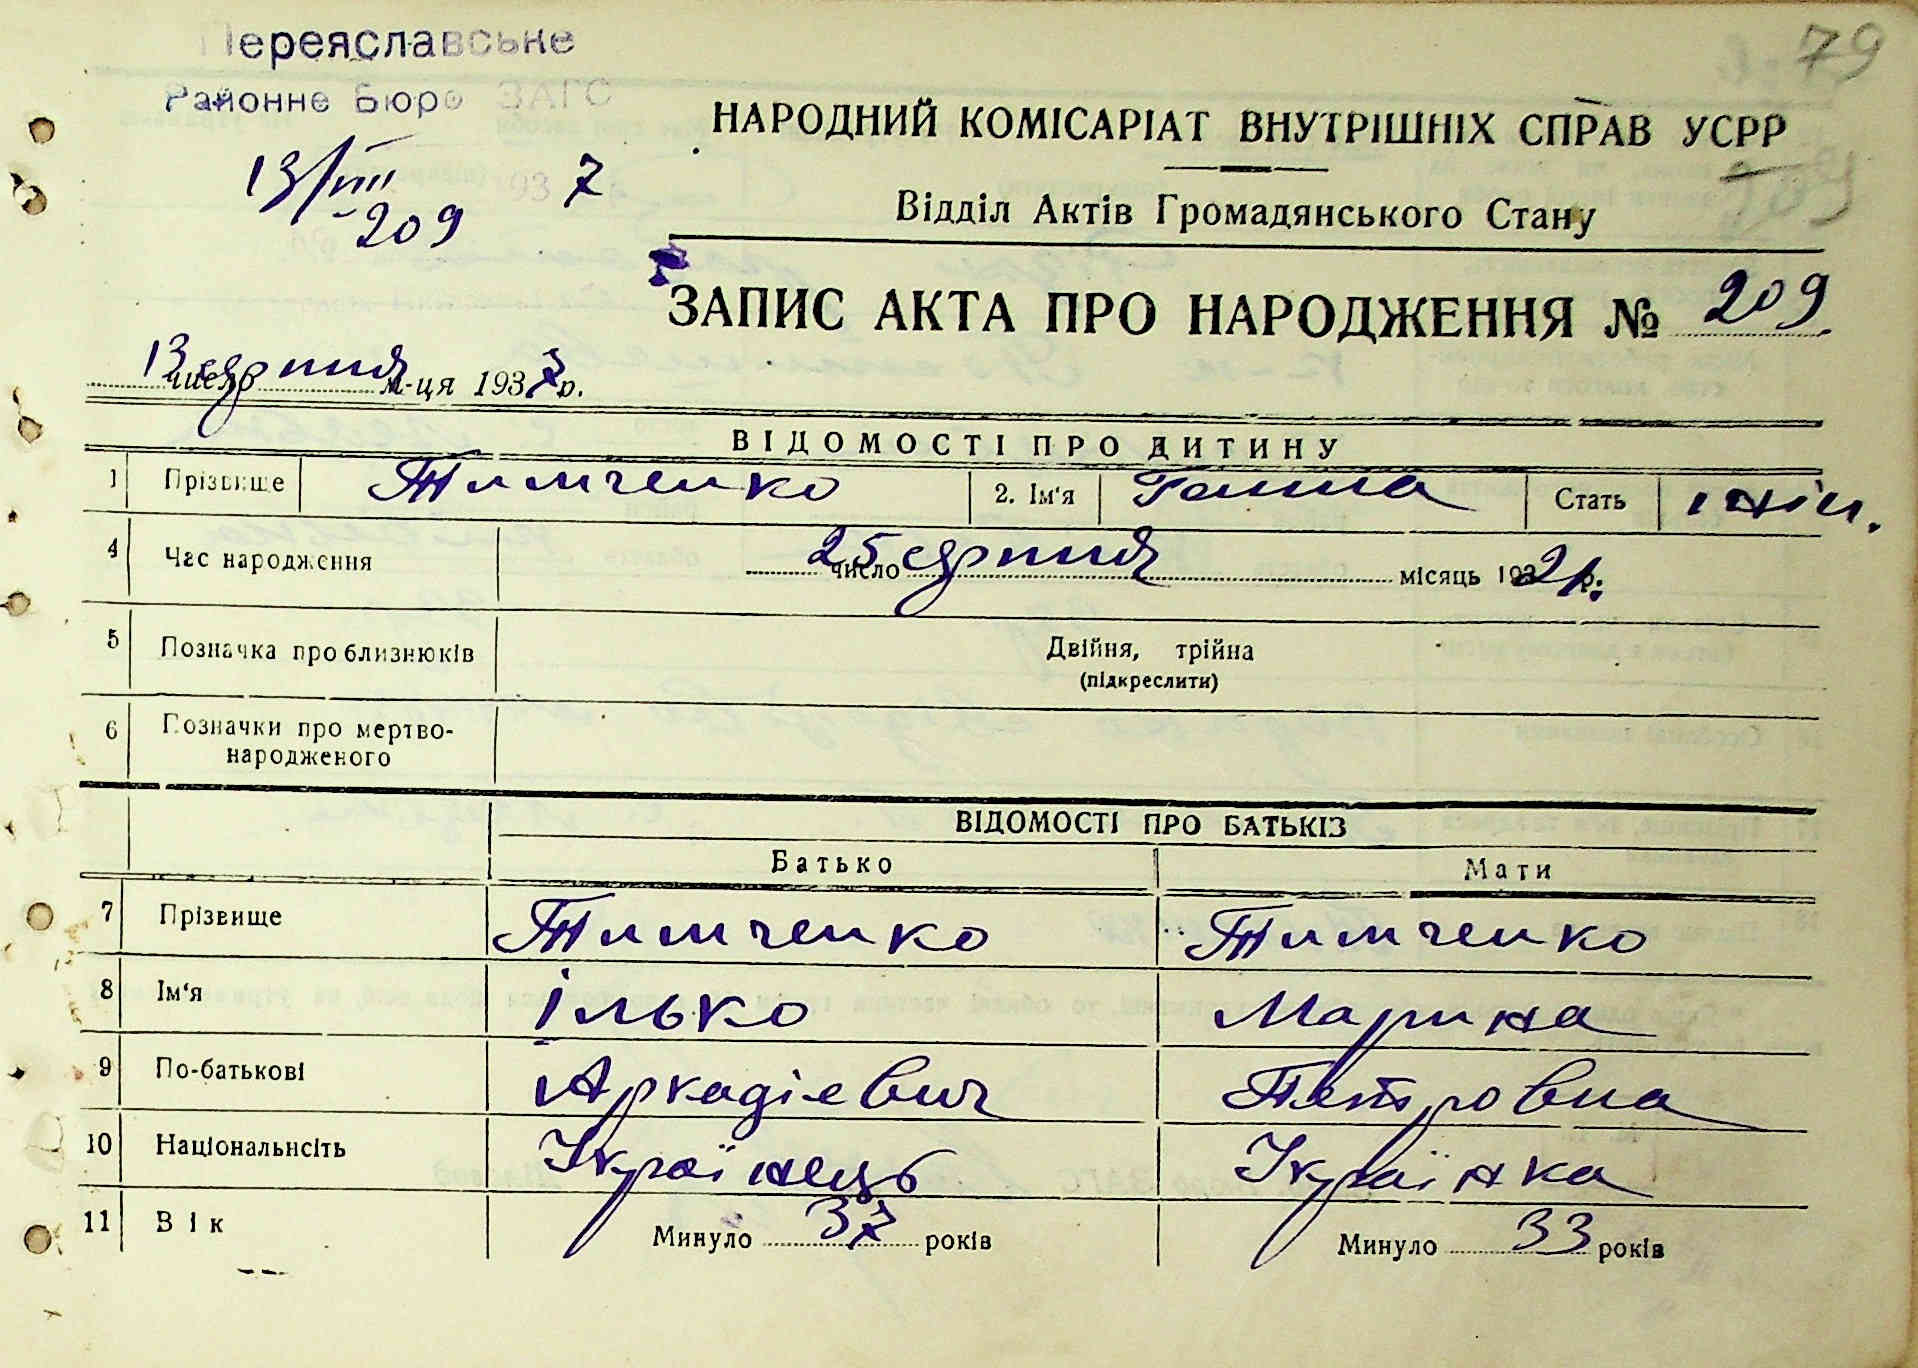 79
Переяславське
Районне Бюро ЗАГС
13/VIII 1937
-209
НАРОДНИЙ КОМІСАРІАТ ВНУТРІШНІХ СПРАВ УСРР
209
Відділ Актів Громадянського Стану
ЗАПИС АКТА ПРО НАРОДЖЕННЯ № 209.
13 число серпня м-ця 1937 р.
ВІДОМОСТІ ПРО ДИТИНУ
1 Прізвище Тимченко 2. Ім'я Ганна Стать жін.
4 Час народження 25 число серпня місяць 1921 р.
5 Позначка про близнюків Двійня, трійна
(підкреслити)
6 Позначки про мертво-
народженого
ВІДОМОСТІ ПРО БАТЬКІВ
Батько Мати
7 Прізвище Тимченко Тимченко
8 Ім'я Ілько Марина
9 По-батькові Аркадієвич Петровна
10 Національнсіть Українець Українка
11 Вік Минуло 37 років Минуло 33 років